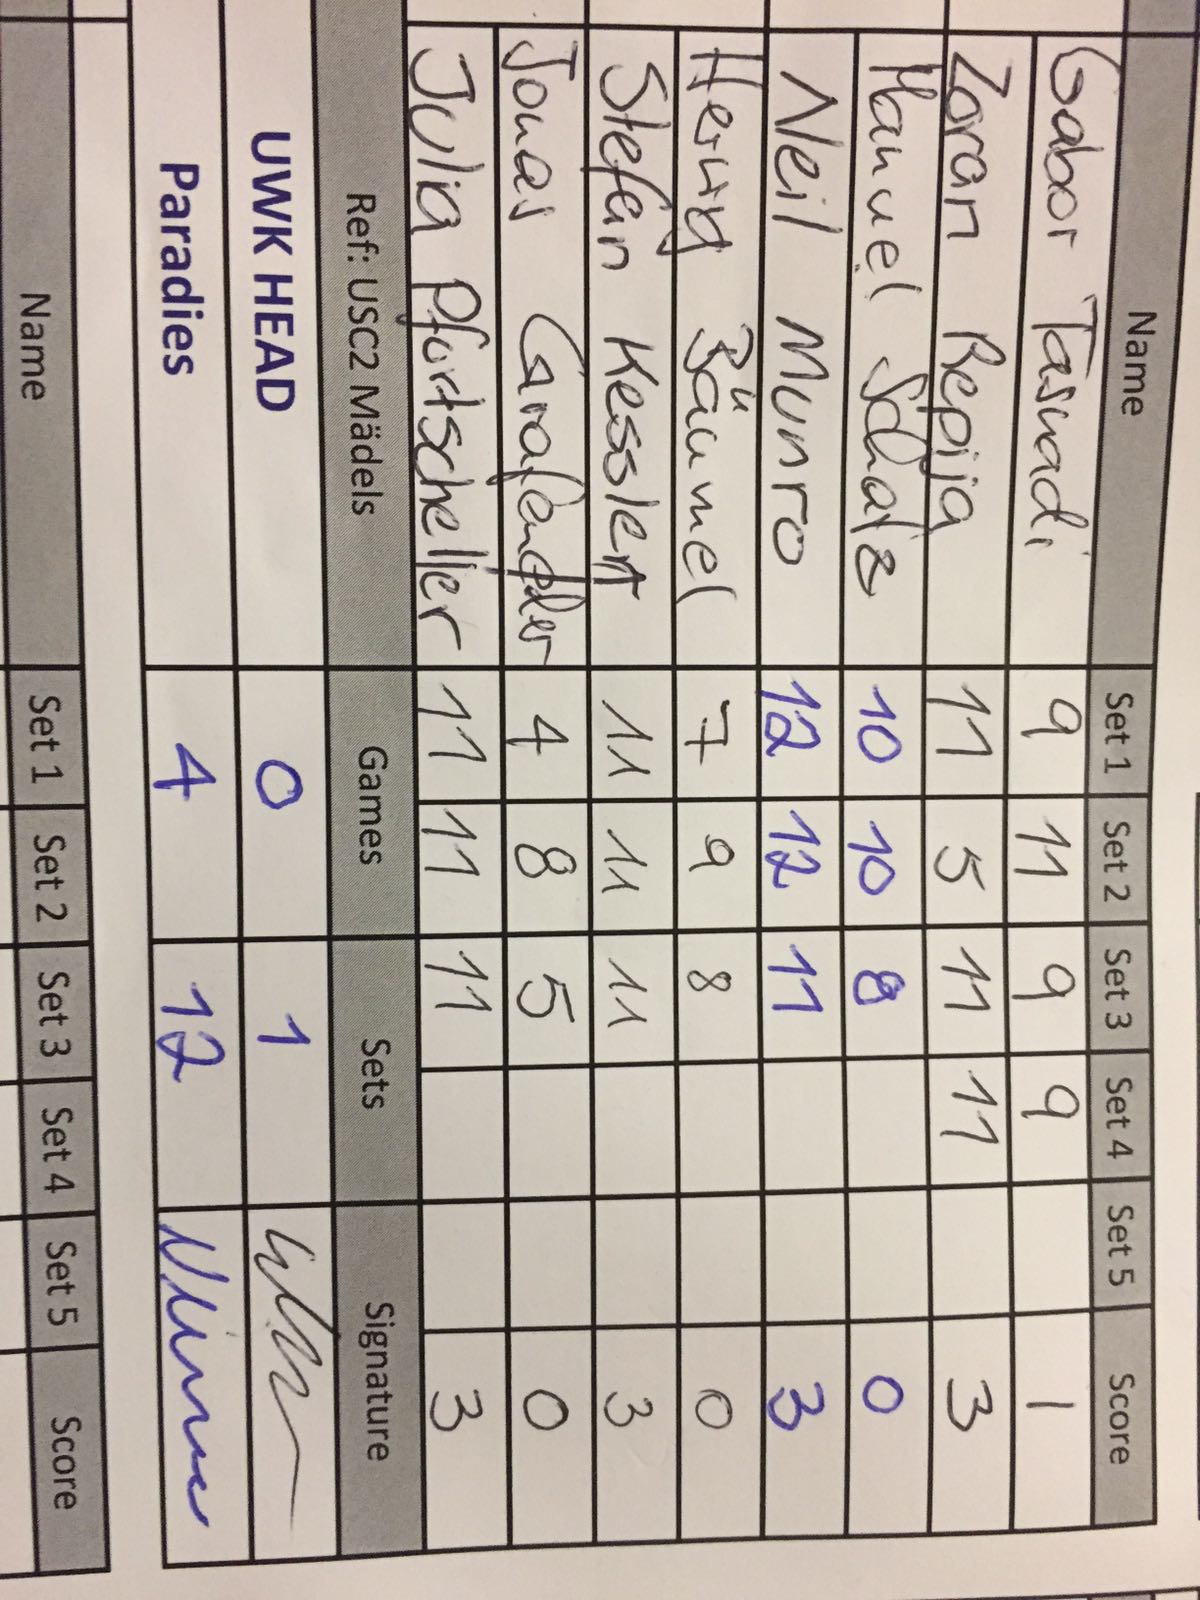 Name Set 1 Set 2 Set 3 Set 4 Set 5 Score
Gabor Tasnadi 9 11 9 9 1
Zoran Repija 11 5 11 11 3
Manuel Schatz 10 10 8 0
Neil Munro 12 12 11 3
Herwig Bäumel 7 9 8 0
Stefan Kessler 11 11 11 3
Jonas Garafender 4 8 5 0
Julia Pfurtscheller 11 11 11 3
Ref: USC2 Mädels Games Sets Signature
UWK HEAD 0 1
Paradies 4 12
Name Set 1 Set 2 Set 3 Set 4 Set 5 Score